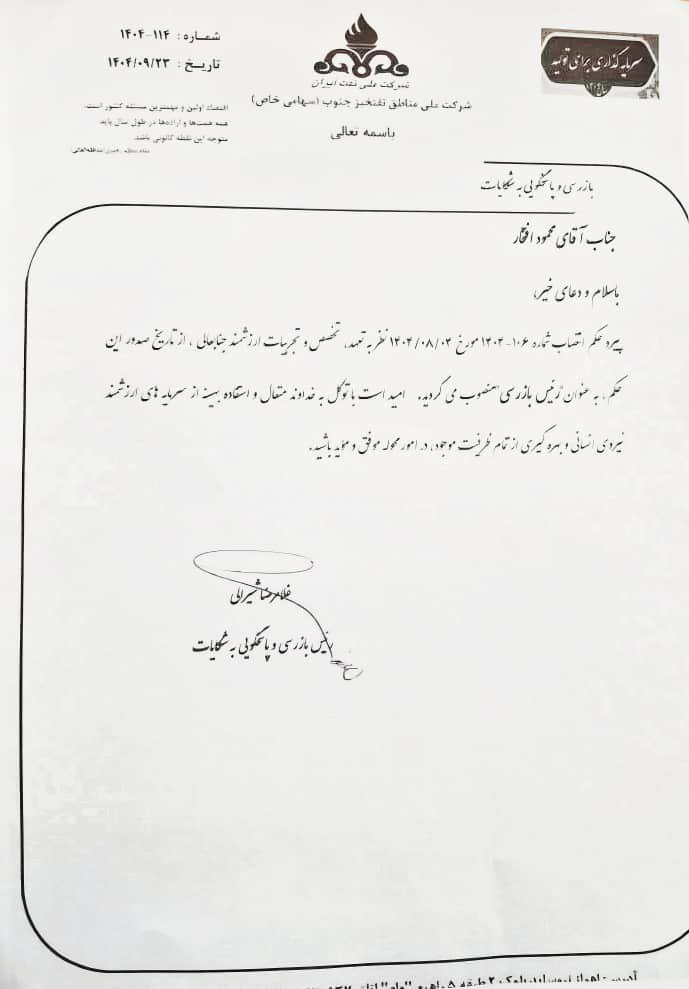 شماره : ۱۱۴-۱۴۰۴
تاریخ : ۱۴۰۴/۰۹/۲۳
سرمایه گذاری برای تولید
شرکت ملی نفت ایران
شرکت ملی مناطق نفتخیز جنوب (سهامی خاص)
باسمه تعالی
اقتصاد اولین و مهمترین مسئله کشور است.
همه همت‌ها و اراده‌ها در طول سال باید
متوجه این نقطه کانونی باشد.
مقام معظم رهبری
بازرسی و پاسخگویی به شکایات
جناب آقای محمود افتخار
باسلام و دعای خیر،
پیرو حکم انتصاب شماره ۱۰۶-۱۴۰۴ مورخ ۱۴۰۴/۰۸/۰۴ نظر به تعهد، تخصص و تجربیات ارزشمند جنابعالی ، از تاریخ صدور این
حکم ، به عنوان "رئیس بازرسی" منصوب می گردید. امید است با توکل به خداوند متعال و استفاده بهینه از سرمایه های ارزشمند
نیروی انسانی و بهره گیری از تمام ظرفیت موجود، در امور محوله موفق و مؤید باشید.
غلامرضا شیرالی
رئیس بازرسی و پاسخگویی به شکایات